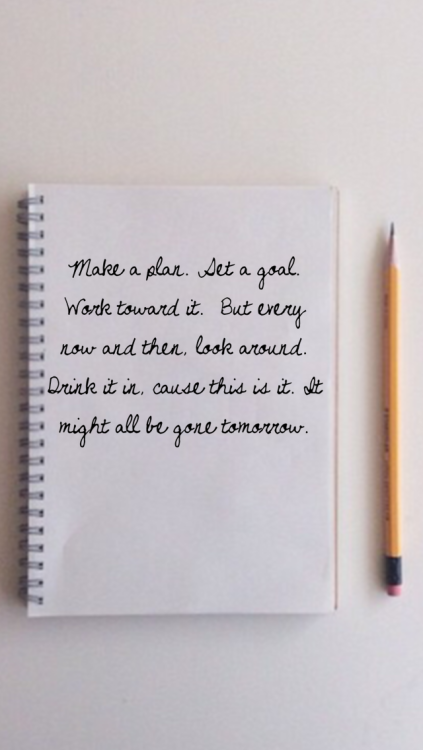 Make a plan. Set a goal.
Work toward it. But every
now and then, look around.
Drink it in, cause this is it. It
might all be gone tomorrow.